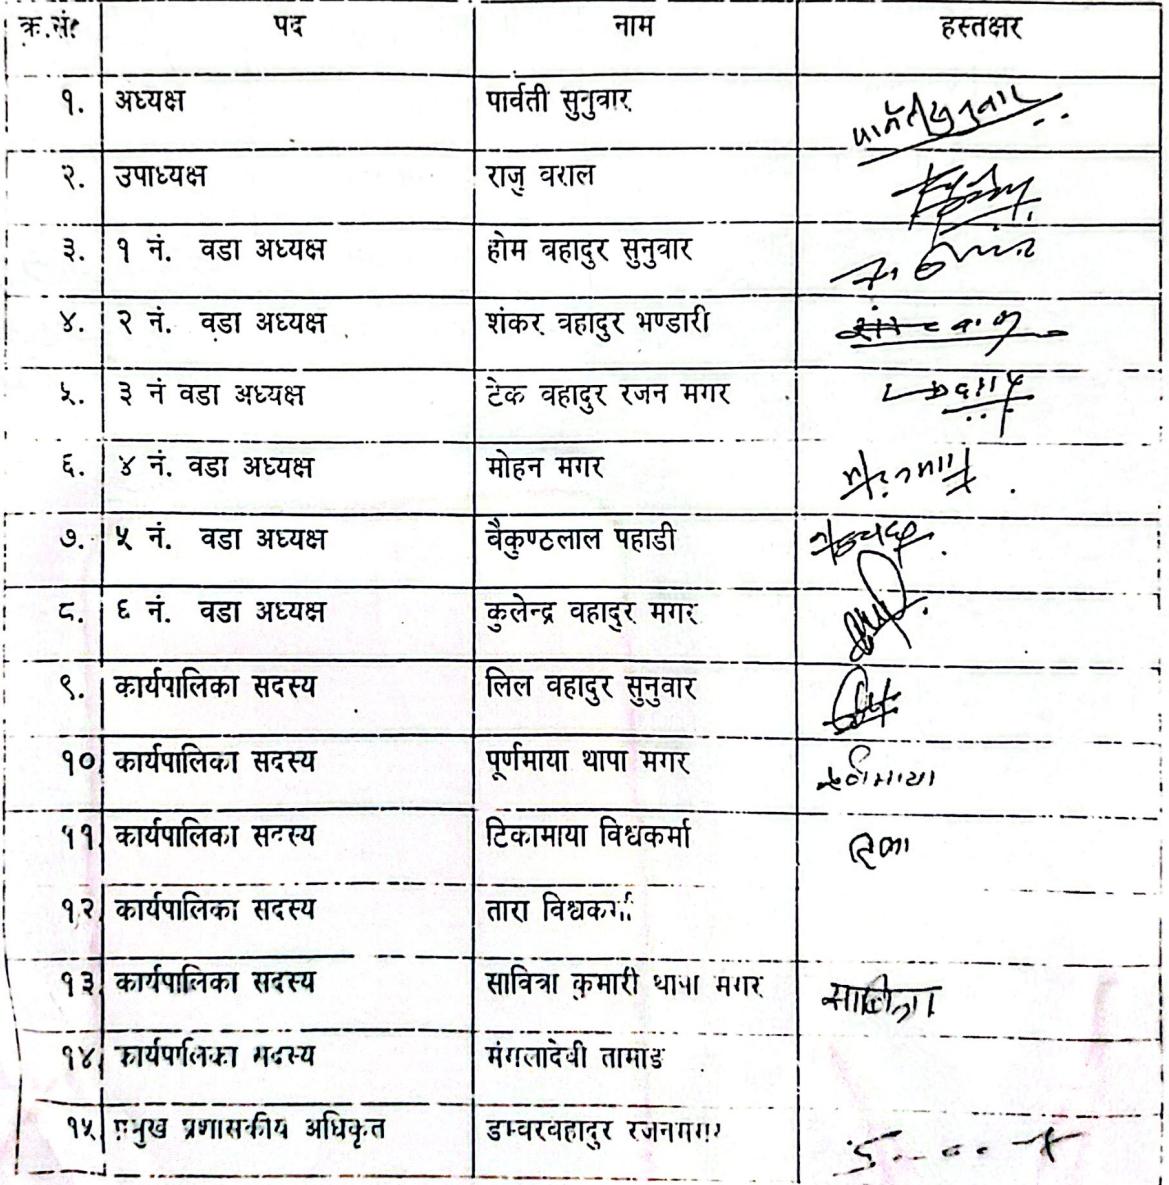 क्र.सं. पद नाम हस्तक्षर
१. अध्यक्ष पार्वती सुनुवार
२. उपाध्यक्ष राजु वराल
३. १ नं. वडा अध्यक्ष होम वहादुर सुनुवार
४. २ नं. वडा अध्यक्ष शंकर वहादुर भण्डारी
५. ३ नं वडा अध्यक्ष टेक वहादुर रजन मगर
६. ४ नं. वडा अध्यक्ष मोहन मगर
७. ५ नं. वडा अध्यक्ष वैकुण्ठलाल पहाडी
८. ६ नं. वडा अध्यक्ष कुलेन्द्र वहादुर मगर
९. कार्यपालिका सदस्य लिल वहादुर सुनुवार
१०. कार्यपालिका सदस्य पूर्णमाया थापा मगर
११. कार्यपालिका सदस्य टिकामाया विश्वकर्मा टिका
१२. कार्यपालिका सदस्य तारा विश्वकर्मा
१३. कार्यपालिका सदस्य सावित्रा कुमारी थापा मगर सावित्रा
१४. कार्यपालिका सदस्य मंगलादेवी तामाङ
१५. प्रमुख प्रशासकीय अधिकृत डम्वरवहादुर रजनमगर